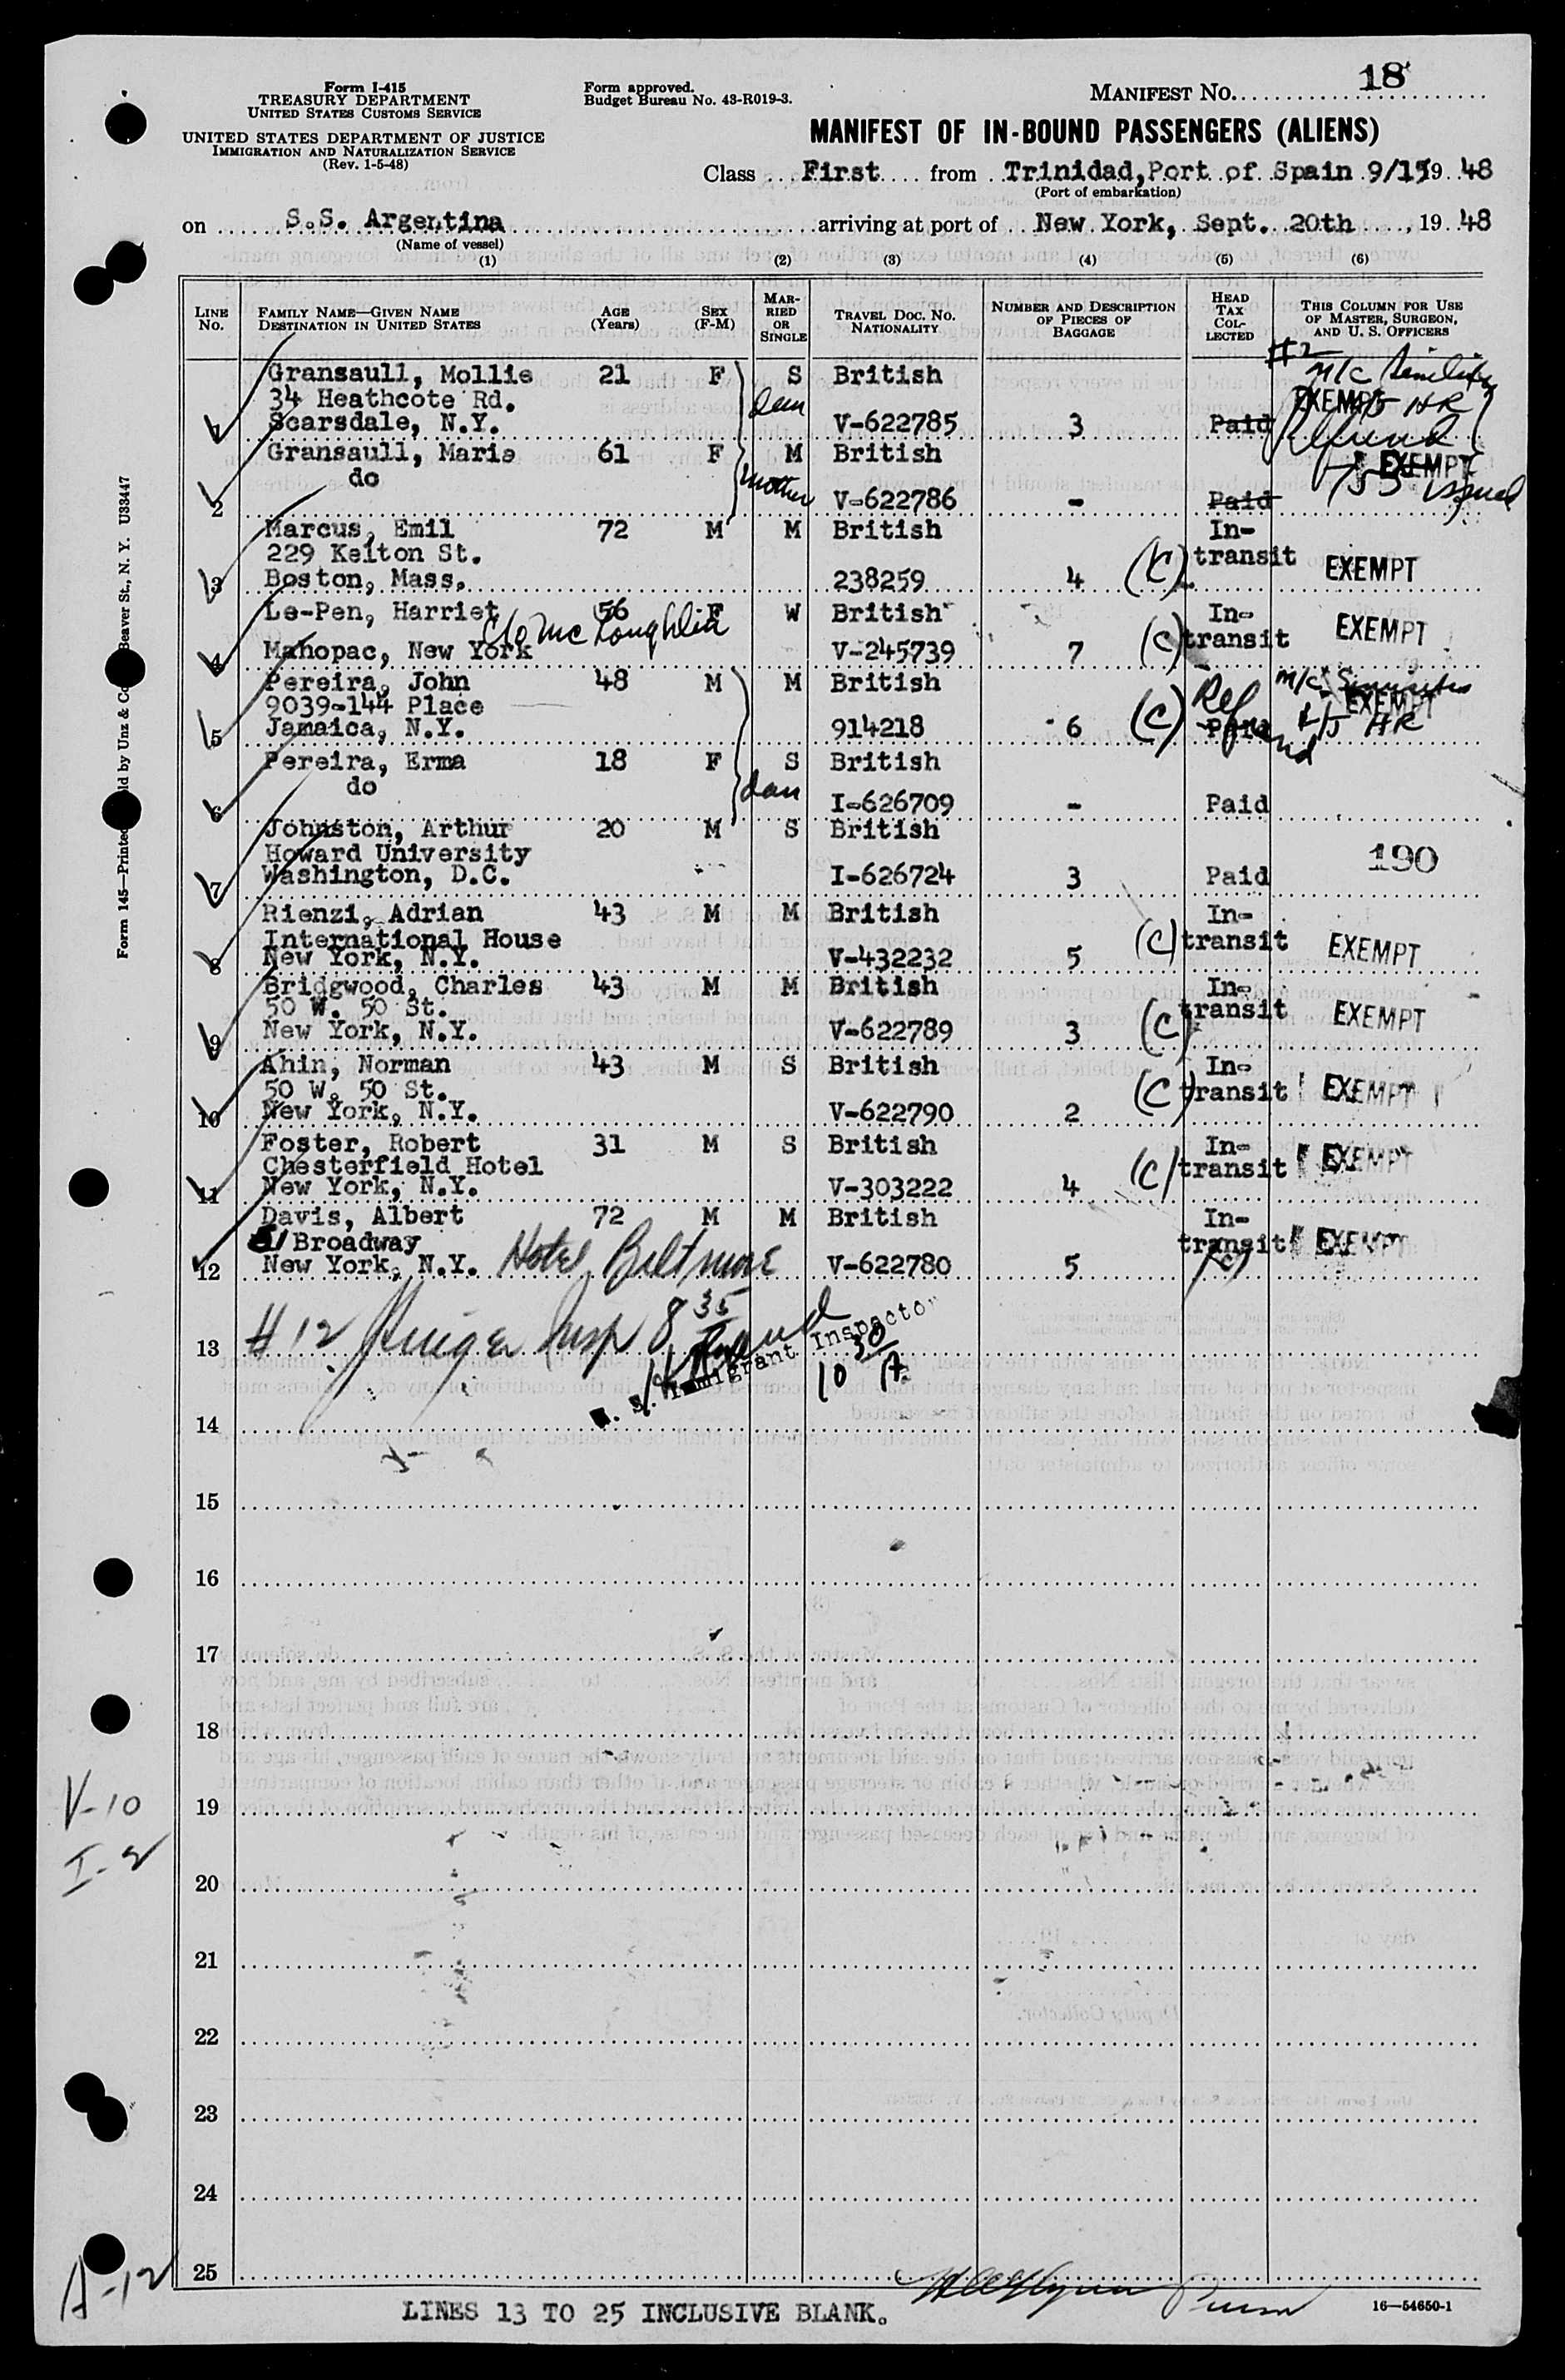 Form I-415
TREASURY DEPARTMENT
UNITED STATES CUSTOMS SERVICE
UNITED STATES DEPARTMENT OF JUSTICE
IMMIGRATION AND NATURALIZATION SERVICE
(Rev. 1-5-48)
Form approved.
Budget Bureau No. 43-R019-3.
MANIFEST NO. 18
MANIFEST OF IN-BOUND PASSENGERS (ALIENS)
Class First from Trinidad, Port of Spain 9/15 19 48
(Port of embarkation)
on S.S. Argentina arriving at port of New York, Sept. 20th, 19 48
(Name of vessel)
(1) (2) (3) (4) (5) (6)
LINE No. FAMILY NAME—GIVEN NAME DESTINATION IN UNITED STATES AGE (Years) SEX (F-M) MARRIED OR SINGLE TRAVEL DOC. NO. NATIONALITY NUMBER AND DESCRIPTION OF PIECES OF BAGGAGE HEAD TAX COLLECTED THIS COLUMN FOR USE OF MASTER, SURGEON, AND U. S. OFFICERS
#2
Gransaull, Mollie 21 F S British M/C
34 Heathcote Rd. dau EXEMPT HR
1 Scarsdale, N.Y. V-622785 3 Paid Refund
Gransaull, Marie 61 F M British EXEMPT
do mother
2 V-622786 - Paid issued
Marcus, Emil 72 M M British In-
229 Kelton St. transit EXEMPT
3 Boston, Mass. 238259 4 (C)
Le-Pen, Harriet 56 F W British In-
c/o McLoughlin transit EXEMPT
4 Mahopac, New York V-245739 7 (C)
Pereira, John 48 M M British M/C
9039-144 Place EXEMPT
5 Jamaica, N.Y. 914218 6 (C) Paid Refund HR
Pereira, Erma 18 F S British
do dau
6 I-626709 - Paid
Johnston, Arthur 20 M S British
Howard University 190
7 Washington, D.C. I-626724 3 Paid
Rienzi, Adrian 43 M M British In-
International House (C) transit EXEMPT
8 New York, N.Y. V-432232 5
Bridgwood, Charles 43 M M British In-
50 W. 50 St. transit EXEMPT
9 New York, N.Y. V-622789 3 (C)
Ahin, Norman 43 M S British In-
50 W. 50 St. (C) transit EXEMPT
10 New York, N.Y. V-622790 2
Foster, Robert 31 M S British In-
Chesterfield Hotel (C) transit EXEMPT
11 New York, N.Y. V-303222 4
Davis, Albert 72 M M British In-
Broadway transit EXEMPT
12 New York, N.Y. Hotel Biltmore V-622780 5 (C)
13 #12 Insp 8 35
Immigrant Inspector
10 30 A
14
15
16
17
18
V-10
19
I-2
20
21
22
23
24
A-12
25
LINES 13 TO 25 INCLUSIVE BLANK.
16—54650-1
Form 145—Printed Beaver St., N. Y. U33447